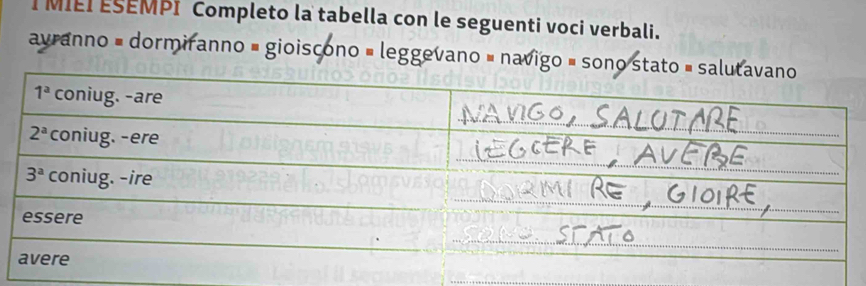 I MIEI ESEMPI Completo la tabella con le seguenti voci verbali.
avranno ▪ dormiranno ▪ gioiscono ▪ leggevano ▪ navigo ▪ sono stato ▪ salutavano
1ª coniug. -are NAVIGO, SALUTARE
2ª coniug. -ere LEGGERE, AVERE
3ª coniug. -ire DORMI RE, GIOIRE,
essere SONO STATO
avere